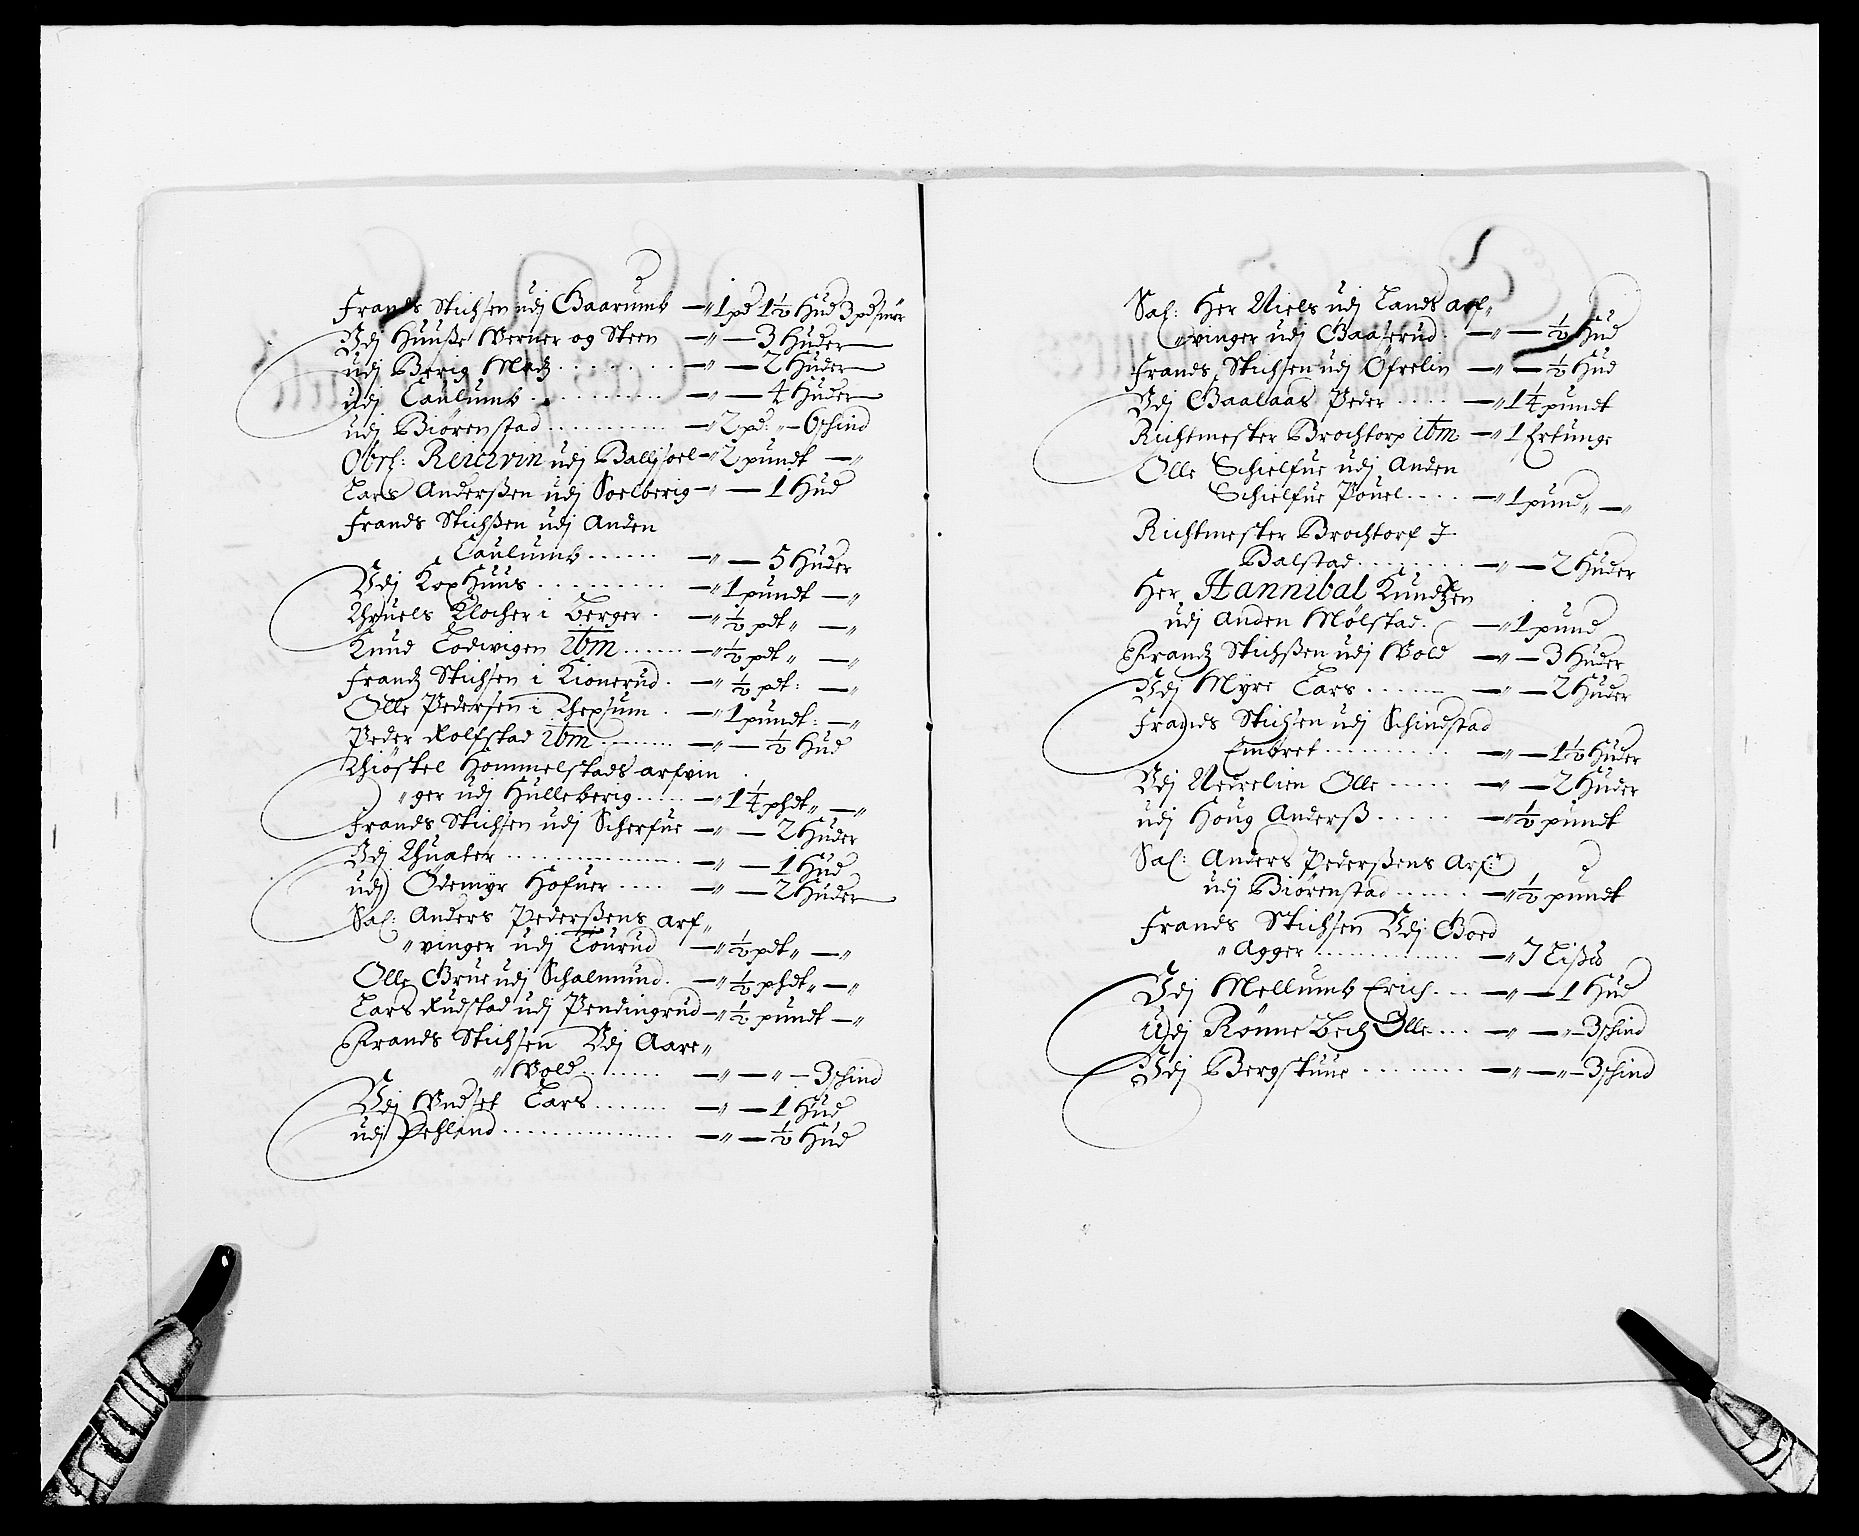 Frands Stichsen udj Baarumb —„ 1 pd 1½ Hud 3 pd smör
Udj Huuße Werner og Steen —„— 3 Huder
udj Berig Matz ........ —„— 2 Huder
udj Caulumb ........ —„— 4 Huder
udj Biörenstad ........ —„ 2 pd: „— 6 schind
Obrl: Reichvin udj Ballisoel —„ 2 pundt —„
Lars Anderßen udj Soelberig —„— 1 Hud
Frands Stichßen udj Anden
Caulumb ...... —„— 5 Huder
Udj KopHuus ........ —„ 1 pundt —„
Klocher i Berger . —„ ½ pdt „ —„
Knud Lodvigen ibm ...... —„ ½ pdt „ —„
Frandz Stichsen i Kionerud . —„ ½ pdt: —„
Olle Pedersen i Thepsum . —„ 1 pundt: —„
Peder Rolfstad ibm ........ —„— ½ Hud
Thiöstel Hommelstads arfvin
„ger udj Hulleberig ..... —„ 1¼ phdt „ —„
Frands Stichsen udj Scherfue —„— 2 Huder
Udj Thuater ........ —„— 1 Hud
udj Ödemyr Hofuer .... —„— 2 Huder
Sal: Anders Pederßens arf„
„vinger udj Tourud —„ ½ pdt „ —„
Olle Grue udj Schalmund . —„ ½ phdt „ —„
Lars Rudstad udj Pendingrud —„ ½ pundt —„
Frands Stichsen Udj Aare„
„Wold ........ —„—„— 3 schind
Udj Wndset Lars ....... —„— 1 Hud
udj Pehland ........ —„— ½ Hud
Sal: Her Niels udj Lands arf„
„vinger udj Baalerud . —„— ½ Hud
Frands Stichsen udj Öfrelin —„— ½ Hud
Udj Baalaas Peder ..... —„ 1¼ pundt
Richtmester Brochtorp ibm —„ 1 Fertunge
Olle Schielfue udj Anden
Schielfue Pouel .... —„ 1 pund „ —„
Richtmester Brochtorf J
Balstad ........ —„— 2 Huder
Her Hannibal Kundtzen
udj Anden Mölstad . —„ 1 pund
Frandz Stichßen udj Wold —„— 3 Huder
Udj Myre Lars ....... —„— 2 Huder
Frands Stichsen udj Schindstad
Embret ........ —„— 1½ Huder
Udj Nedrelien Olle ..... —„— 2 Huder
udj Houg Anderß ..... —„ ½ pundt
Sal: Anders Pederßens Arf:
udj Biörenstad ...... —„ ½ pundt
Frands Stichsen Udj Bord
„Agger ........ —„ 7 Lißp
Udj Mellumb Erich ... —„— 1 Hud
Udj Rönne Bech Olle ... —„—„— 3 schind
Udj Bergstuue ........ —„—„— 3 schind